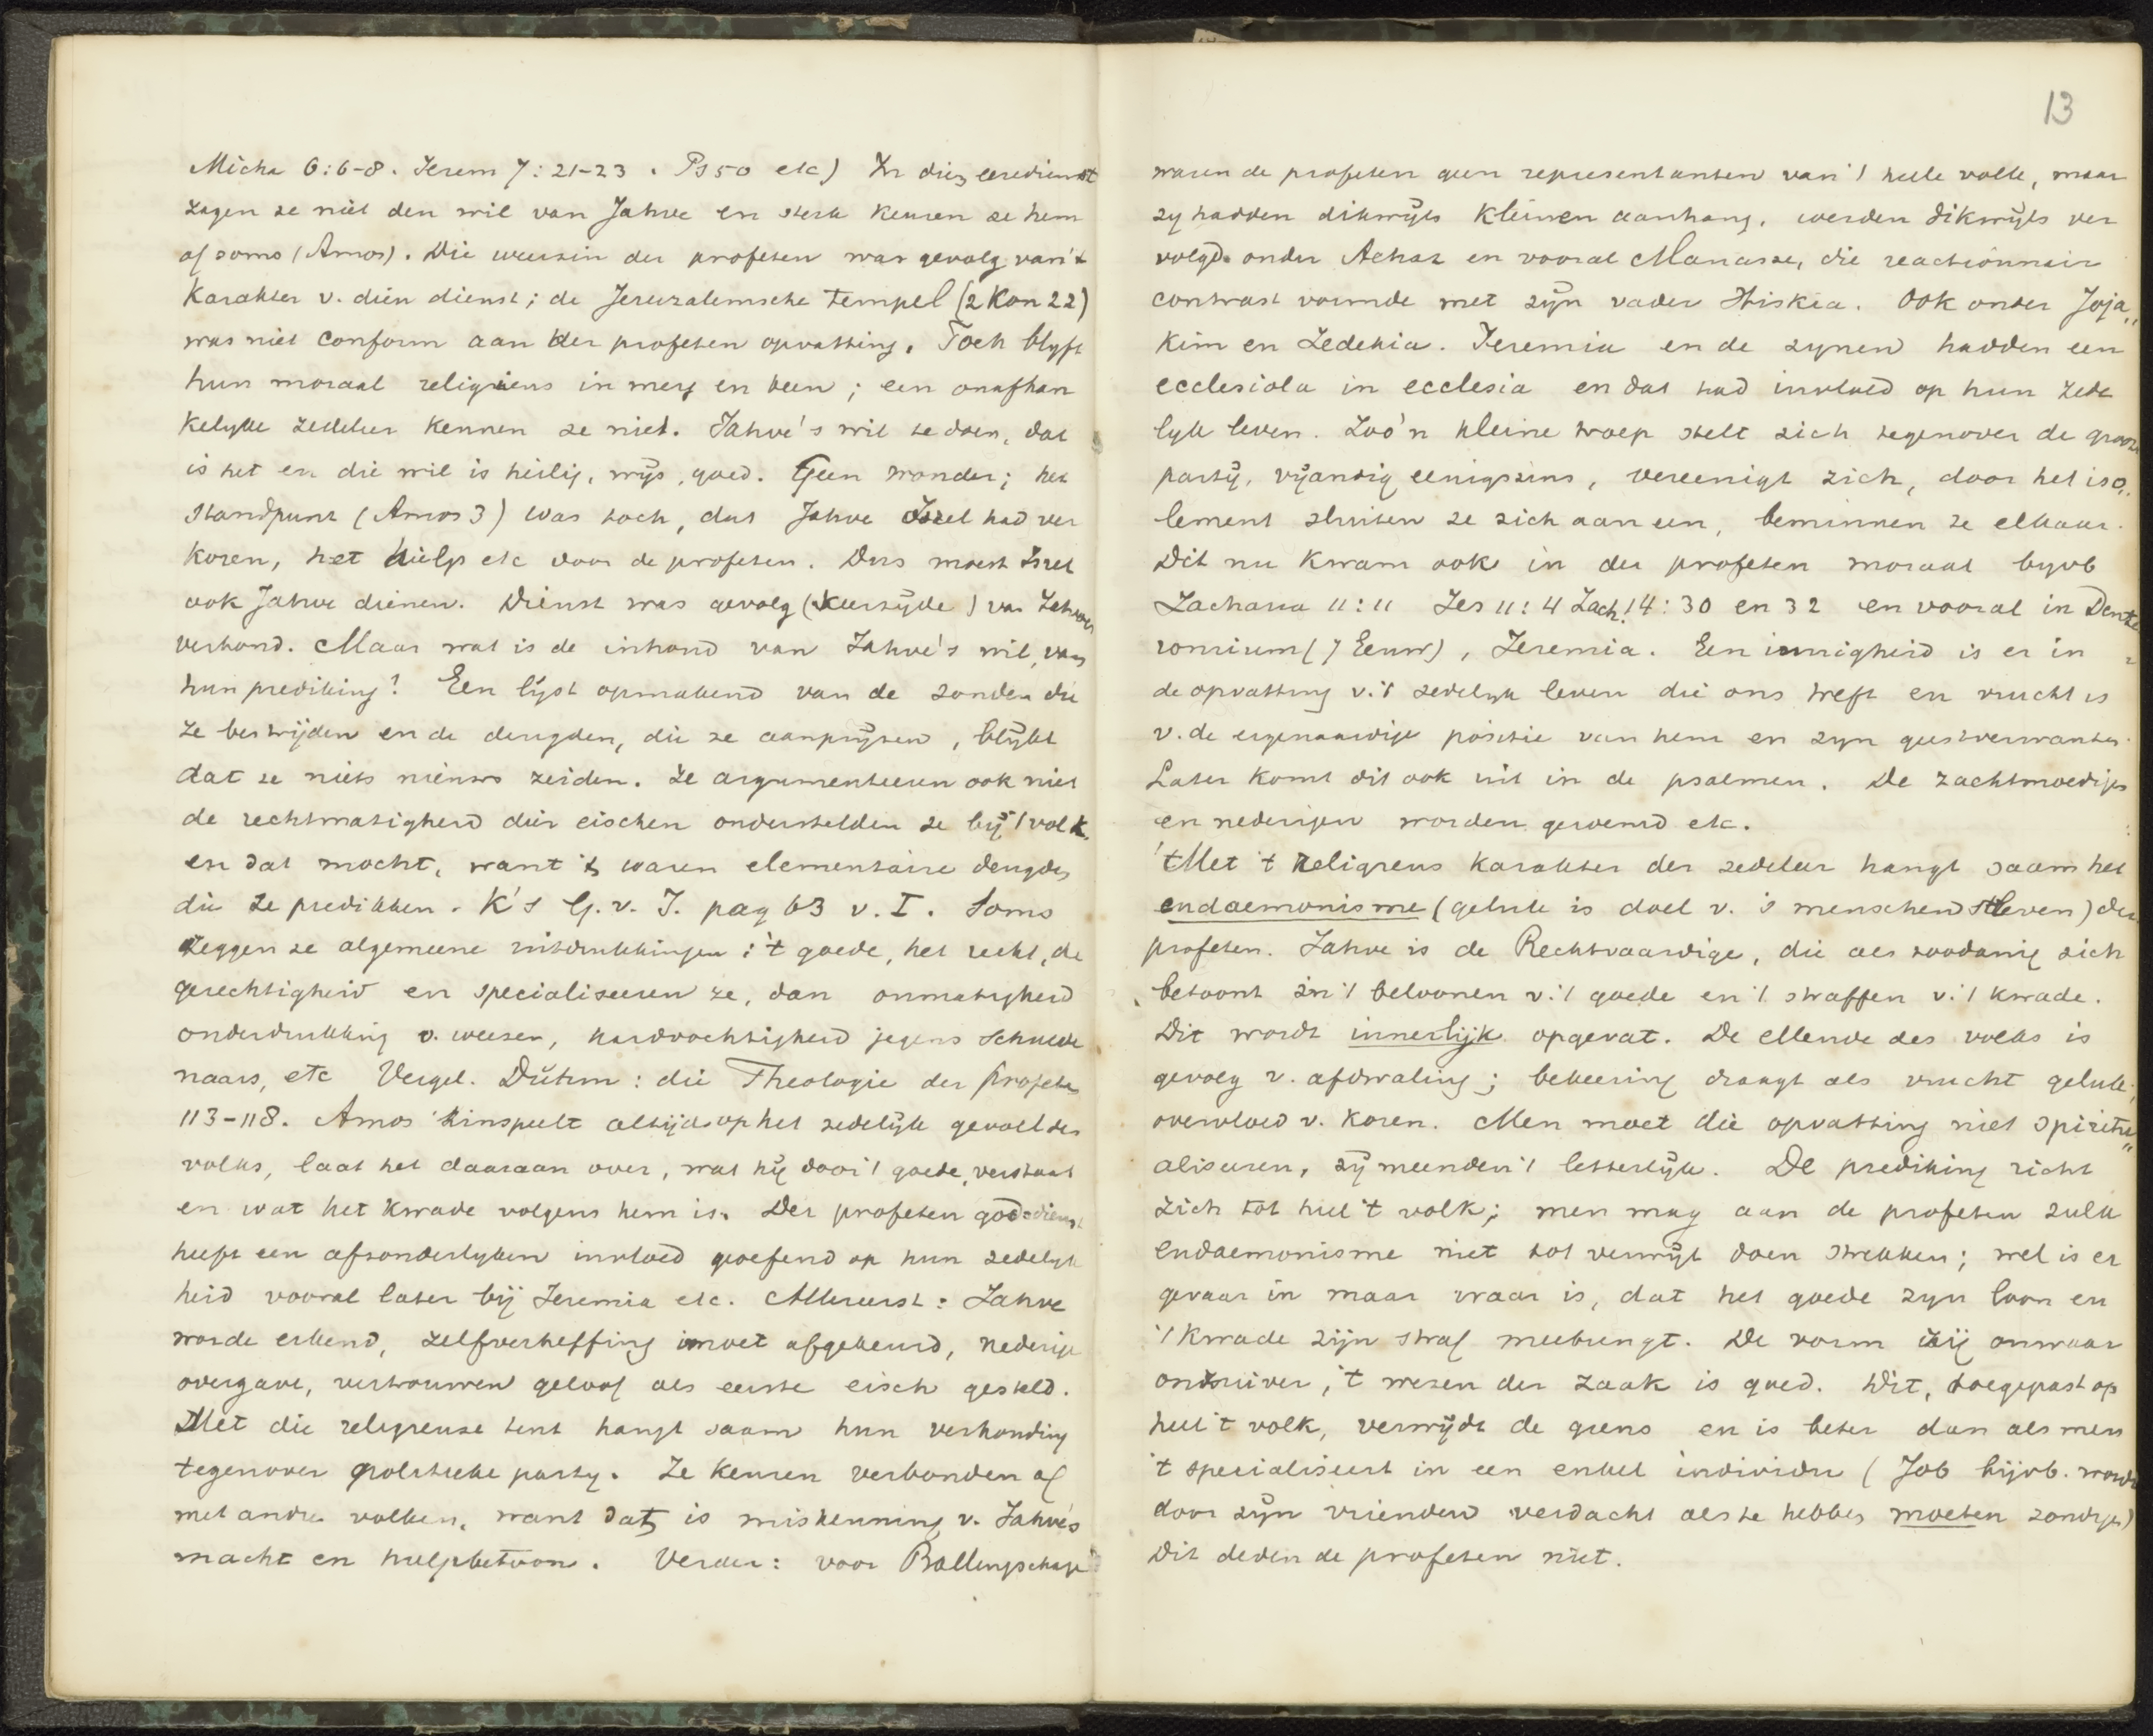 Micha 6:6-8. Jerem 7:21-23. Ps 50 etc) In dien eeredienst
zagen ze niet den wil van Jahve en sterk keuren ze hem
af soms (Amos). Die weerzin der profeten was gevolg van 't
karakter v. dien dienst; de Jeruzalemsche tempel (2 Kon 22)
was niet conform aan der profeten opvatting. Toch blyft
hun moraal religieus in merg en been; een onafhan
kelyke zedeleer kennen ze niet. Jahve's wil te doen, dat
is het en die wil is heilig, wijs, goed. Geen wonder; het
standpunt (Amos 3) was toch, dat Jahve Israel had ver
koren, het hielp etc door de profeten. Dus moest Israel
ook Jahve dienen. Dienst was gevolg (keerzijde) van Jahves
verbond. Maar wat is de inhoud van Jahve's wil, van
hun prediking? Een lijst opmakend van de zonden die
ze bestrijden en de deugden, die ze aanprijzen, blijkt
dat ze niets nieuws zeiden. Ze argumenteeren ook niet
de rechtmatigheid dier eischen onderstelden ze bij 't volk.
en dat mocht, want 't waren elementaire deugden
die ze predikken. K's G. v. I. pag 63 v. I. Soms
zeggen ze algemeene uitdrukkingen: 't goede, het recht, de
gerechtigheid en specialiseeren ze, dan onmatigheid
onderdrukking v. weezen, hardvochtigheid jegens schulde
naars, etc Vergel. Duhm: die Theologie der Profeten
113-118. Amos hinspeelt altijd op het zedelijk gevoel des
volks, laat het daaraan over, wat hij door 't goede, verstaat
en wat het kwade volgens hem is. Der profeten godsdienst
heeft een afzonderlyken invloed geoefend op hun zedelyk
heid vooral later bij Jeremia etc. Allereerst: Jahve
worde erkend, zelfverheffing moet afgekeurd, nederige
overgave, vertrouwen geloof als eerste eisch gesteld.
Met die religieuse tint hangt saam hun verhouding
tegenover politieke party. Ze keuren verbonden af
met andre volken, want dat is miskenning v. Jahve's
macht en hulpbetoon. Verder: voor Ballingschap
13
waren de profeten geen representanten van 't heele volk, maar
zy hadden dikwijls kleinen aanhang, werden dikwijls ver
volgd. onder Achaz en vooral Manasse, die reactionnair
contrast vormde met zijn vader Hiskia. Ook onder Joja"
kim en Zedekia. Jeremia en de zynen hadden een
ecclesiola in ecclesia en dat had invloed op hun zede
lyk leven. Zoo'n kleine troep stelt zich tegenover de groote
partij, vijandig eenigszins, vereenigt zich, door het iso"
lement sluiten ze zich aaneen, beminnen ze elkaar.
Dit nu kwam ook in der profeten moraal byvb
Zacharia 11:11 Jes 11:4 Zach. 14:30 en 32 en vooral in Deute
ronium (7 Eeuw), Jeremia. Een innigheid is er in
de opvatting v. 't zedelyk leven die ons treft en vrucht is
v. de eigenaardige positie van hem en zyn geestverwanten.
Later komt dit ook uit in de psalmen. De zachtmoedigen
en nederigen worden geroemd etc.
Met 't religieus karakter der zedeleer hangt saam het
eudaemonisme (geluk is doel v. 's menschen streven) der
profeten. Jahve is de Rechtvaardige, die als zoodanig zich
betoont in 't beloonen v. 't goede en 't straffen v. 't kwade.
Dit wordt innerlijk opgevat. De ellende des volks is
gevolg v. afdwaling; bekeering draagt als vrucht geluk,
overvloed v. koren. Men moet die opvatting niet spiritu"
aliseeren, zij meenden 't letterlijk. De prediking richt
zich tot heel 't volk; men mag aan de profeten zulk
eudaemonisme niet tot verwijt doen strekken; wel is er
gevaar in maar waar is, dat het goede zyn loon en
't kwade zijn straf meebrengt. De vorm zij onwaar
onzuiver, 't wezen der zaak is goed. Dit, toegepast op
heel 't volk, verwijdt de grens en is beter dan als men
't specialiseert in een enkel individu (Job bijvb. wordt
door zijn vrienden verdacht als te hebben moeten zondigen)
Dit deden de profeten niet.